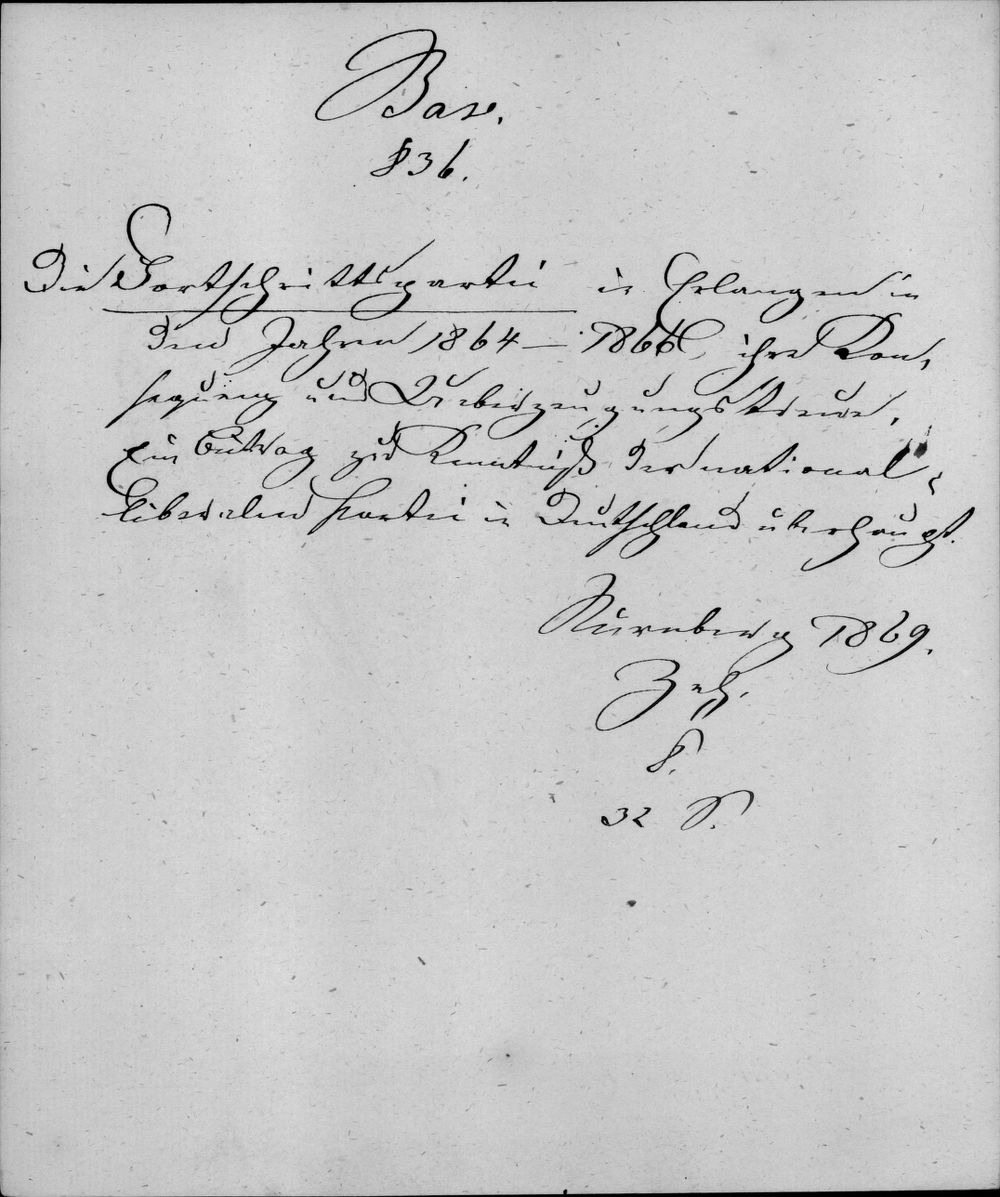 Bav.
836.
Die Fortschrittspartei in Erlangen in
den Jahren 1864 – 1868, ihre Kon-
sequenz und Ueberzeugungstreue,
Ein Beitrag zur Kenntniß der national-
liberalen Partei in Deutschland überhaupt.
Nürnberg 1869.
8.
32 S.